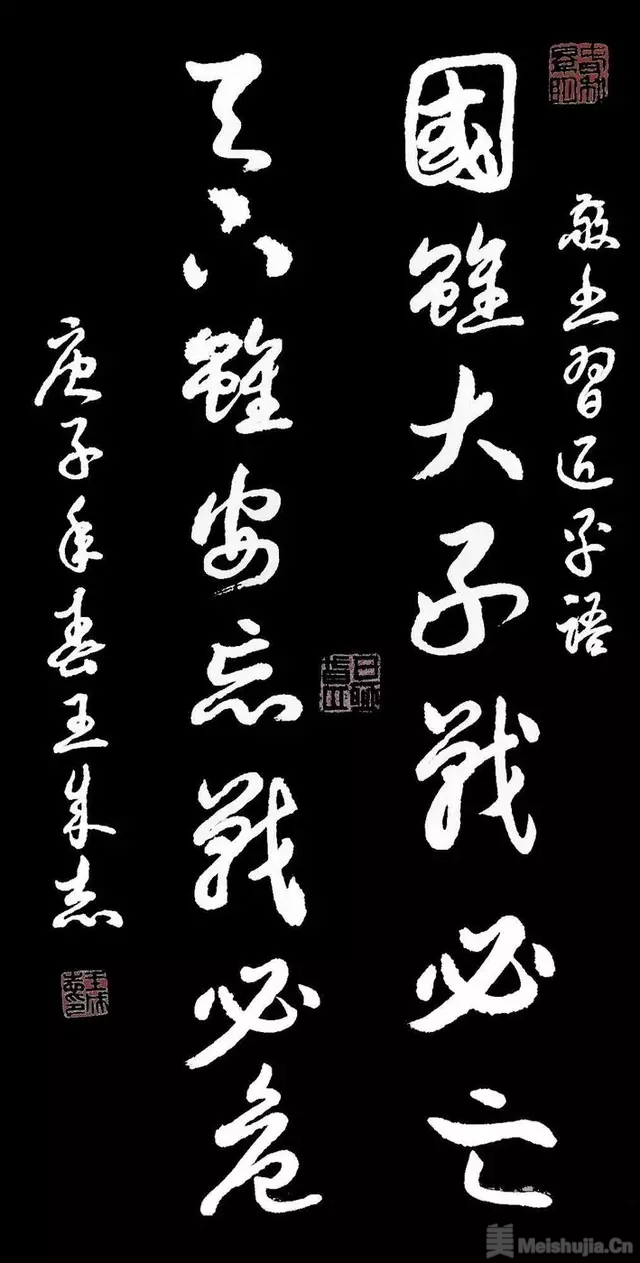 敬书習近平語
國雖大好戰必亡
天下雖安忘戰必危
庚子年春王志
美 Meishujia.Cn